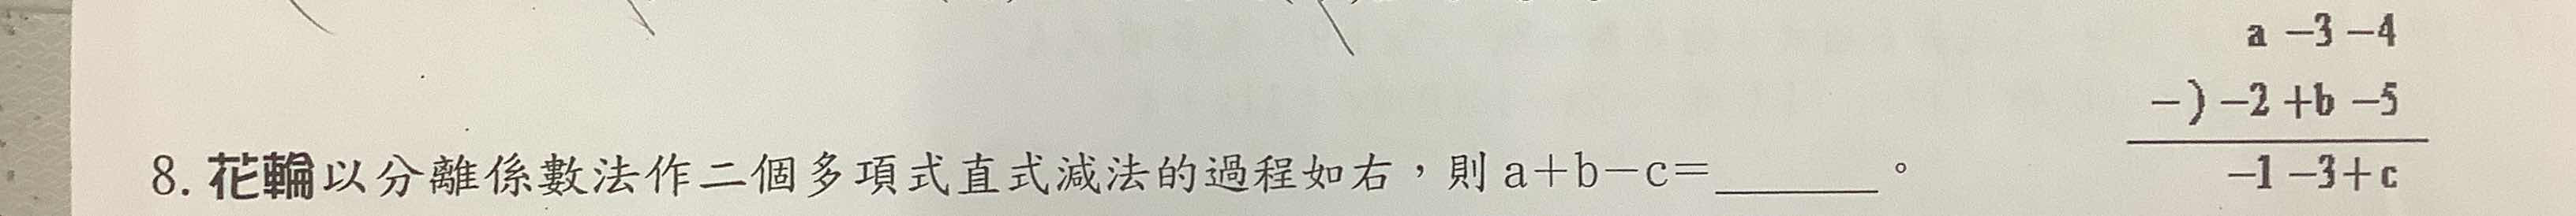 a −3 −4
−) −2 +b −5
−1 −3+c
8. 花輪以分離係數法作二個多項式直式減法的過程如右，則 a＋b－c＝______。